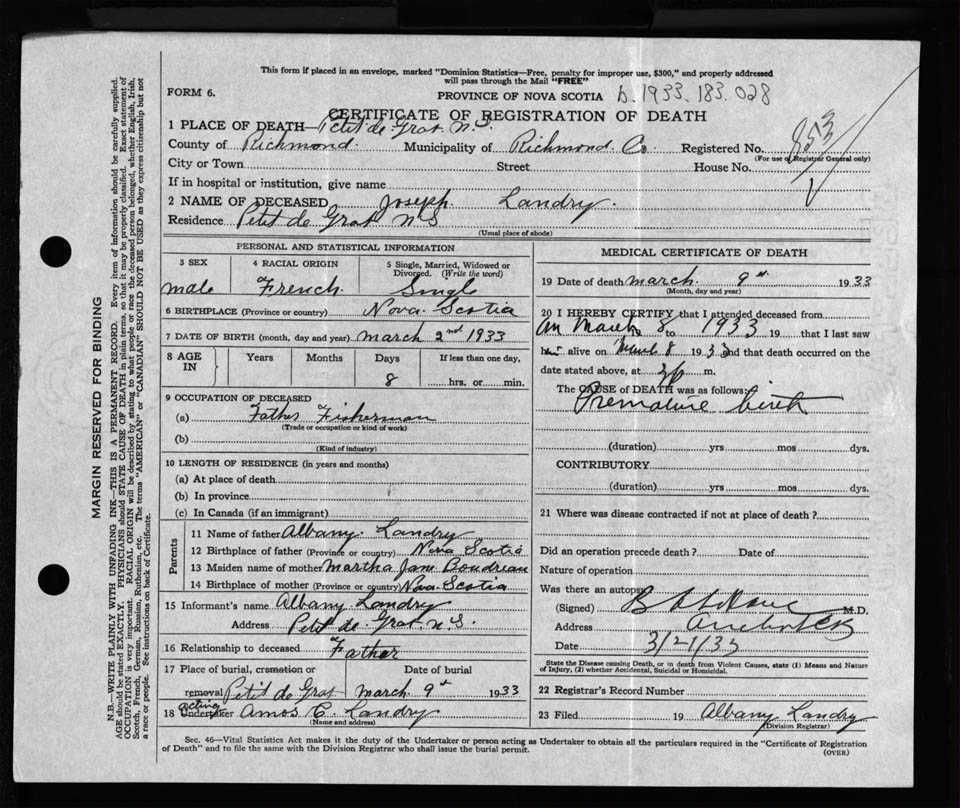 This form if placed in an envelope, marked "Dominion Statistics—Free, penalty for improper use, $300," and properly addressed
will pass through the Mail "FREE"
FORM 6.
PROVINCE OF NOVA SCOTIA b.1933.183.028
CERTIFICATE OF REGISTRATION OF DEATH
1 PLACE OF DEATH— Petit de Grat. N.S.
County of Richmond. Municipality of Richmond Co. Registered No. 853
(For use of Registrar General only)
City or Town Street House No.
If in hospital or institution, give name
2 NAME OF DECEASED Joseph Landry.
Residence Petit de Grat N S
(Usual place of abode)
PERSONAL AND STATISTICAL INFORMATION
3 SEX 4 RACIAL ORIGIN 5 Single, Married, Widowed or
Divorced. (Write the word)
male French. Single
6 BIRTHPLACE (Province or country) Nova Scotia
7 DATE OF BIRTH (month, day and year) march 2nd 1933
8 AGE IN Years Months Days If less than one day,
8 hrs. or min.
9 OCCUPATION OF DECEASED
(a) Father Fisherman
(Trade or occupation or kind of work)
(b)
(Kind of industry)
10 LENGTH OF RESIDENCE (in years and months)
(a) At place of death
(b) In province
(c) In Canada (if an immigrant)
Parents
11 Name of father Albany Landry
12 Birthplace of father (Province or country) Nova Scotia
13 Maiden name of mother Martha Jane Boudreau
14 Birthplace of mother (Province or country) Nova Scotia
15 Informant's name Albany Landry
Address Petit de Grat. N.S.
16 Relationship to deceased Father
17 Place of burial, cremation or Date of burial
removal Petit de Grat march 9th 1933
18 acting Undertaker Amos C. Landry
(Name and address)
MEDICAL CERTIFICATE OF DEATH
19 Date of death march 9th 1933
(Month, day and year)
20 I HEREBY CERTIFY that I attended deceased from
on March 8 to 1933 19 that I last saw
h alive on March 8 1933 and that death occurred on the
date stated above, at m.
The CAUSE of DEATH was as follows:
Premature birth
(duration) yrs mos dys.
CONTRIBUTORY
(duration) yrs mos dys.
21 Where was disease contracted if not at place of death?
Did an operation precede death? Date of
Nature of operation
Was there an autopsy
(Signed) M.D.
Address
Date 3/21/33
State the Disease causing Death, or in death from Violent Causes, state (1) Means and Nature
of Injury, (2) whether Accidental, Suicidal or Homicidal.
22 Registrar's Record Number
23 Filed 19 Albany Landry
(Division Registrar)
Sec. 46—Vital Statistics Act makes it the duty of the Undertaker or person acting as Undertaker to obtain all the particulars required in the "Certificate of Registration
of Death" and to file the same with the Division Registrar who shall issue the burial permit.
(OVER)
MARGIN RESERVED FOR BINDING
N.B.—WRITE PLAINLY WITH UNFADING INK—THIS IS A PERMANENT RECORD. Every item of information should be carefully supplied.
AGE should be stated EXACTLY. PHYSICIANS should STATE CAUSE OF DEATH in plain terms, so that it may be properly classified. Exact statement of
OCCUPATION is very important. RACIAL ORIGIN will be described by stating to what people or race the deceased person belonged, whether English, Irish,
Scotch, French, German, Russian, Ruthenian, etc. The terms "AMERICAN" or "CANADIAN" SHOULD NOT BE USED as they express citizenship but not
a race or people. See instructions on back of Certificate.